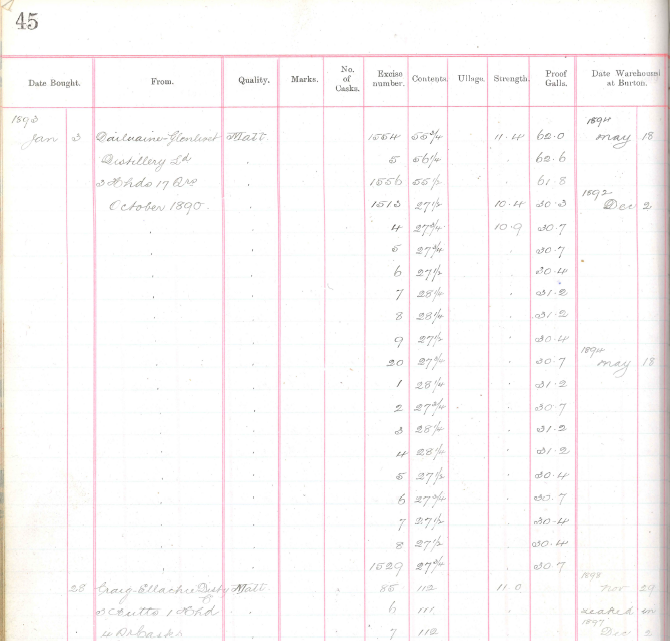 45
Date Bought. From. Quality. Marks. No. of Casks. Excise number. Contents. Ullage. Strength. Proof Galls. Date Warehoused at Burton.
1893 1894
Jan 3 Dailuaine-Glenlivet Malt 1554 55 3/4 11.4 62.0 May 18
Distillery Ld . 5 56 1/4 . 62.6
3 Hhds 17 Qrs . 1556 55 1/2 . 61.8
1892
October 1890. . 1513 27 1/2 10.4 30.3 Dec 2
. . 4 27 3/4 10.9 30.7
. . 5 27 3/4 . 30.7
. . 6 27 1/2 . 30.4
. . 7 28 1/4 . 31.2
. . 8 28 1/4 . 31.2
. . 9 27 1/2 . 30.4
1894
. . 20 27 3/4 . 30.7 May 18
. . 1 28 1/4 . 31.2
. . 2 27 3/4 . 30.7
. . 3 28 1/4 . 31.2
. . 4 28 1/4 . 31.2
. . 5 27 1/2 . 30.4
. . 6 27 3/4 . 30.7
. . 7 27 1/2 . 30.4
. . 8 27 1/2 . 30.4
. . 1529 27 3/4 . 30.7
1898
28 Craig-Ellachie Disty Malt 85 112 11.0 Nov 29
3 Butts 1 Hhd . 6 111 . Leaked
1897
. 4 . 7 112 . Dec 2